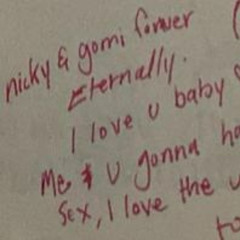 nicky & gomi forever
Eternally.
I love u baby
Me & U gonna ha
Sex, I love the u
to